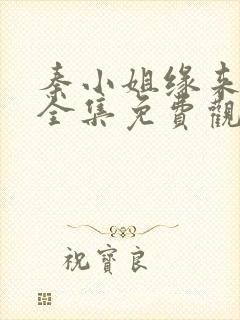 秦小姐缘来
全集免費觀
祝寶良